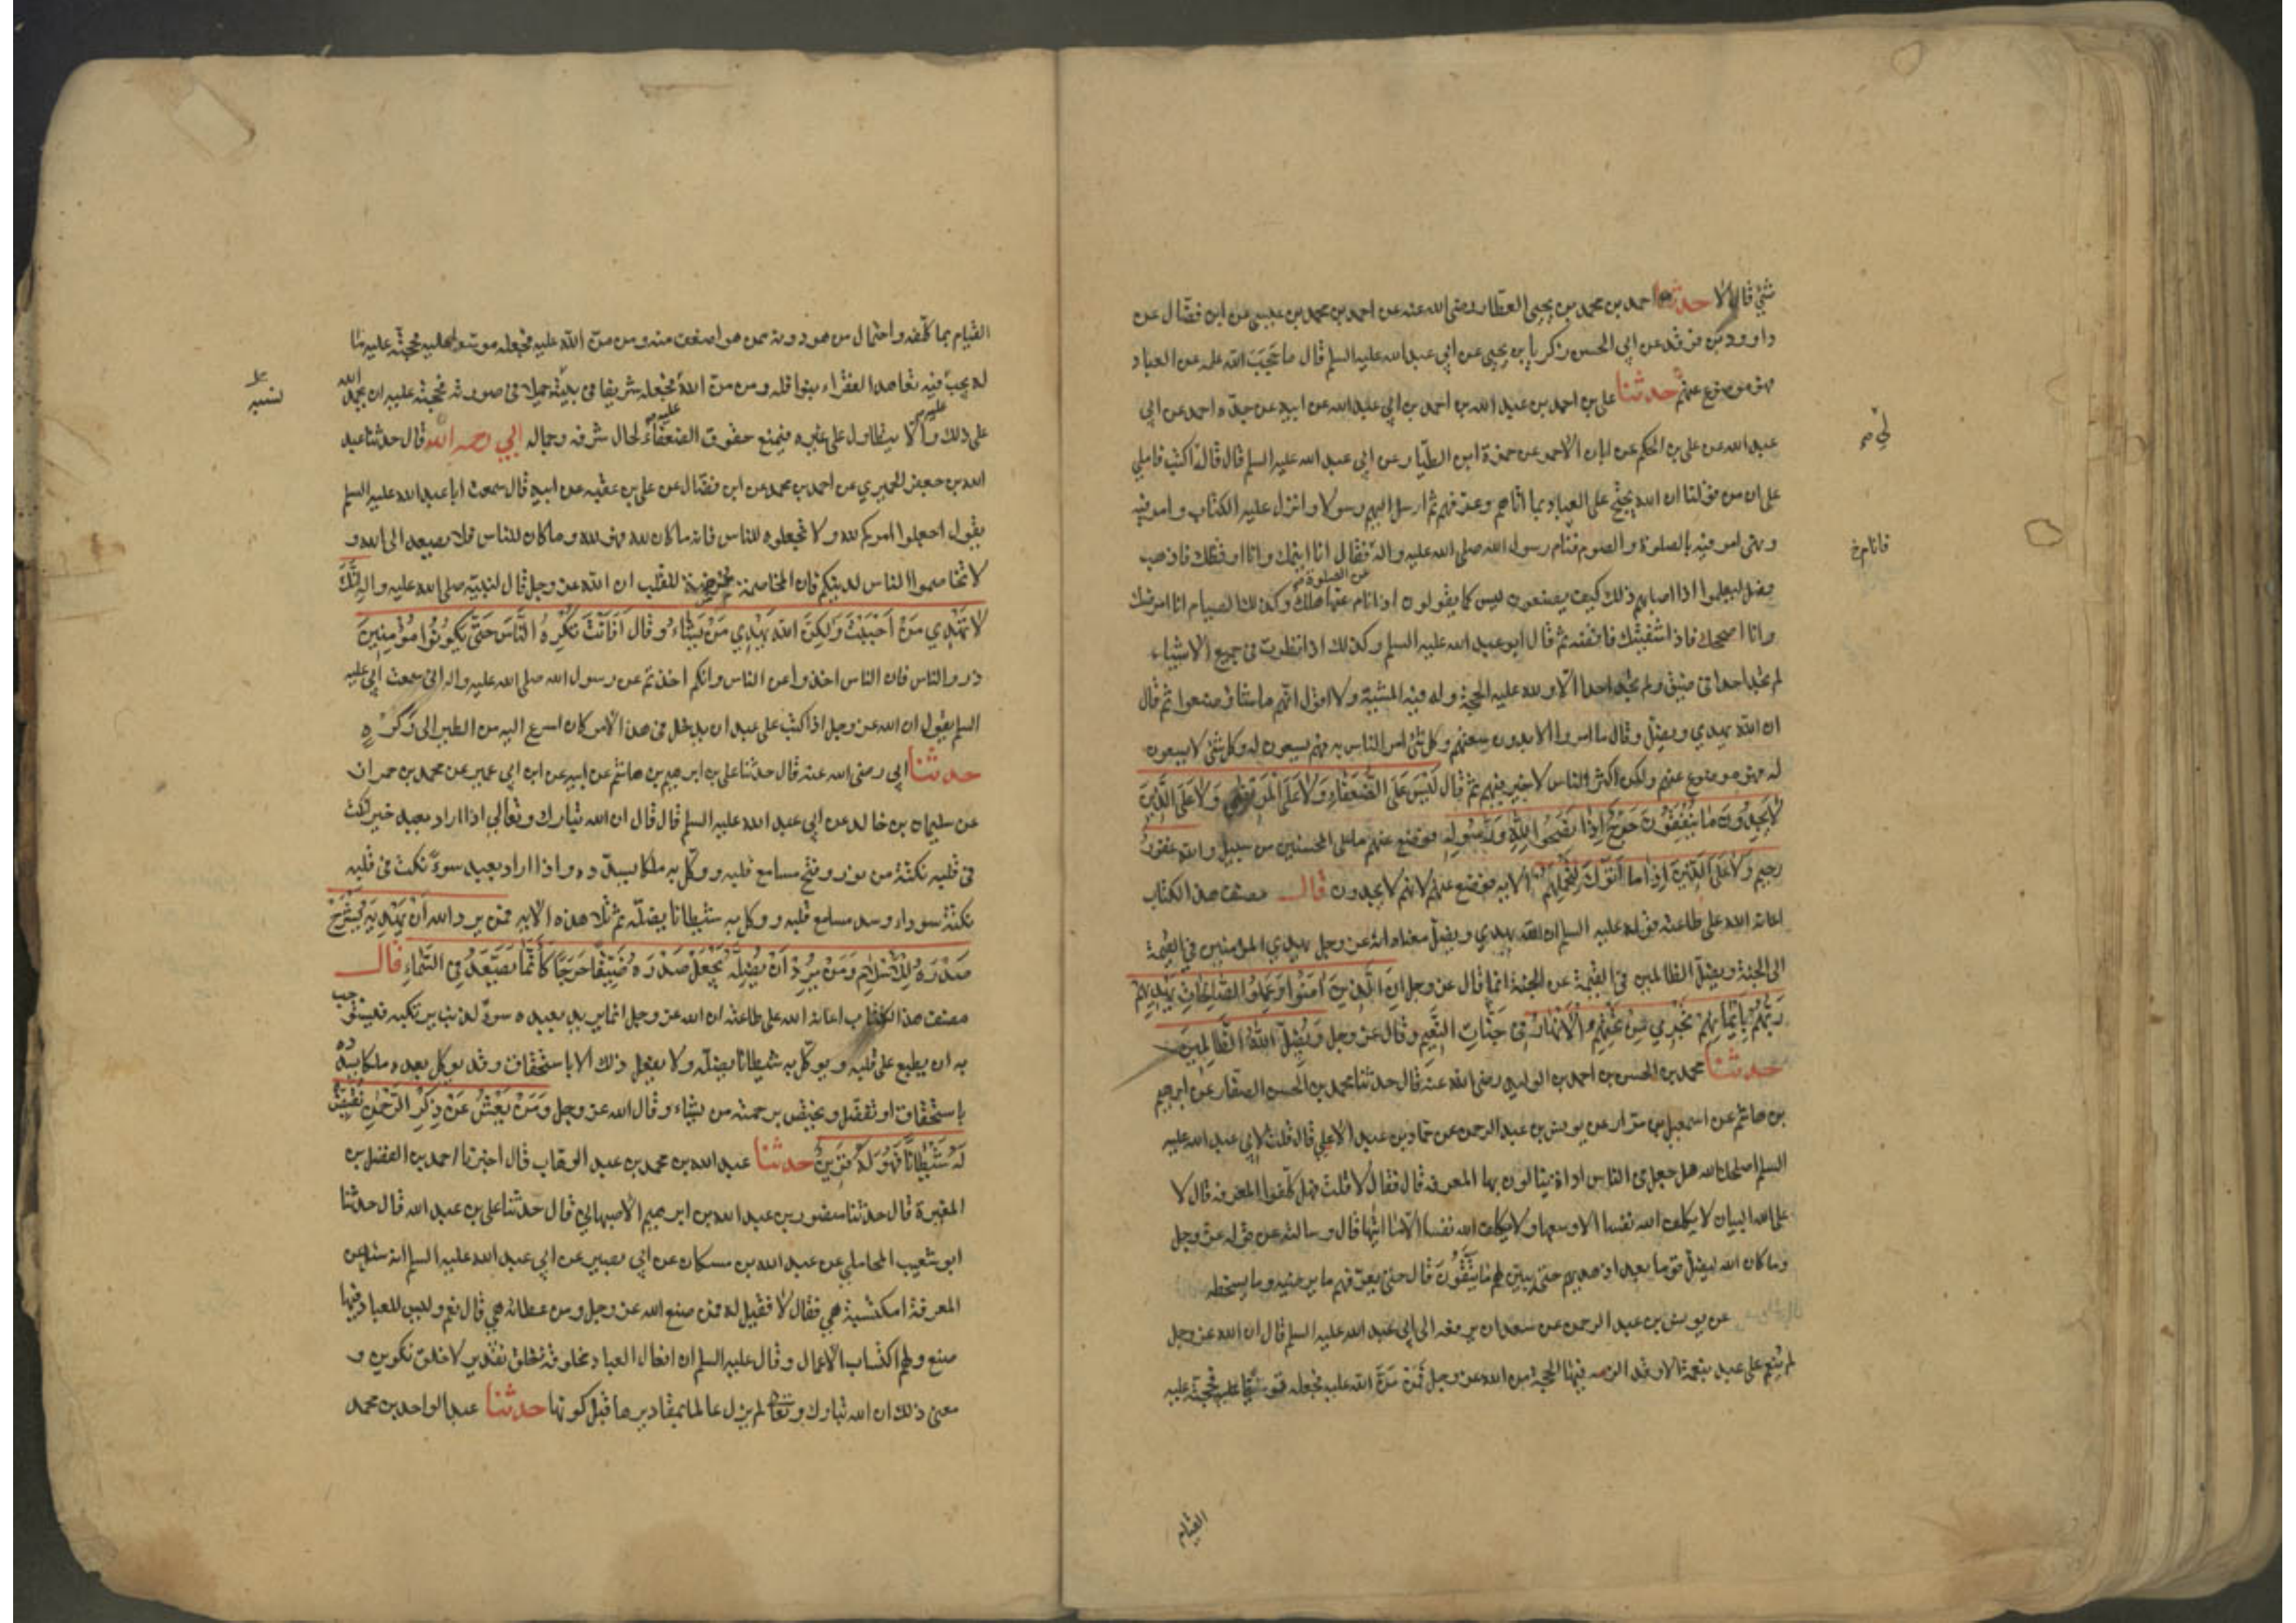 شئ قال لا حدثنا احمد بن محمد بن يحيى العطار رضى الله عنه عن احمد بن محمد بن عيسى عن ابن فضال عن
داوود بن فرقد عن ابى الحسن زكريا بن يحيى عن ابي عبد الله عليه السلم قال ما حجب الله علمه عن العباد
فهو موضوع عنهم حدثنا على بن احمد بن عبد الله بن احمد بن ابي عبد الله عن ابيه عن جده احمد عن ابي
عبد الله عن على بن الحكم عن ابان الاحمر عن حمزة ابن الطيار عن ابي عبد الله عليه السلم قال قال لى اكتب فاملى
على ان من قولنا ان الله يحتج على العباد بما اتاهم وعرفهم ثم ارسل اليهم رسولا وانزل عليه الكتاب وامر فيه
ونهى امر فيه بالصلوة والصوم فنام رسول الله صلى الله عليه واله فقال انا انيمك وانا اوقظك فاذهب
فانام خ
فصل ليعلموا اذا اصابهم ذلك كيف يصنعون ليس كما يقولون اذا نام عنها هلك وكذلك الصيام انا امرضك
عن الصلوة
وانا اصحك فاذا شفيتك فاقضه ثم قال ابو عبد الله عليه السلم وكذلك اذا نظرت فى جميع الاشياء
لم تجد احدا فى ضيق ولم تجد احدا الا ولله عليه الحجة وله فيه المشية ولا اقول انهم ما شاؤا صنعوا ثم قال
ان الله يهدي ويضل وقال ما امروا الا بدون سعتهم وكل شئ امر الناس به فهم يسعون له وكل شئ لا يسعون
له فهو موضوع عنهم ولكن اكثر الناس لا خير فيهم ثم قال لَيْسَ عَلَى الضُّعَفَاءِ وَلَا عَلَى الْمَرْضَى وَلَا عَلَى الَّذِينَ
لَا يَجِدُونَ مَا يُنْفِقُونَ حَرَجٌ إِذَا نَصَحُوا لِلَّهِ وَرَسُولِهِ فوضع عنهم ما على المحسنين من سبيل والله غفور
رحيم وَلَا عَلَى الَّذِينَ إِذَا مَا أَتَوْكَ لِتَحْمِلَهُمْ الايه فوضع عنهم لانهم لا يجدون قال مصنف هذا الكتاب
اعانه الله على طاعته قوله عليه السلم ان الله يهدي ويضل معناه انه عز وجل يهدي المؤمنين في القيمة
الى الجنة ويضل الظالمين فى القيمة عن الجنة انما قال عز وجل إِنَّ الَّذِينَ آمَنُوا وَعَمِلُوا الصَّالِحَاتِ يَهْدِيهِمْ
رَبُّهُمْ بِإِيمَانِهِمْ تَجْرِي مِنْ تَحْتِهِمُ الْأَنْهَارُ فِي جَنَّاتِ النَّعِيمِ وقال عز وجل وَيُضِلُّ اللَّهُ الظَّالِمِينَ
حدثنا محمد بن الحسن بن احمد بن الوليد رضى الله عنه قال حدثنا محمد بن الحسن الصفار عن ابرهيم
بن هاشم عن اسمعيل بن مرار عن يونس بن عبد الرحمن عن حماد بن عبد الاعلى قال قلت لابي عبد الله عليه
السلم اصلحك الله هل جعل فى الناس اداة ينالون بها المعرفه قال فقال لا قلت فهل كلفوا المعرفه قال لا
على الله البيان لا يكلف الله نفسا الا وسعها ولا يكلف الله نفسا الا ما اتيها قال وسالته عن قوله عز وجل
وما كان الله ليضل قوما بعد اذ هديهم حتى يبين لهم ما يَتَّقُونَ قال حتى يعرفهم ما يرضيه وما يسخطه
عن يونس بن عبد الرحمن عن سعدان يرفعه الى ابي عبد الله عليه السلم قال ان الله عز وجل
لم ينعم على عبد بنعمة الا وقد الزمه فيها الحجة من الله عز وجل فمن من الله عليه فجعله قويا فحجته عليه
القيام
القيام بما كلفه واحتمال من هو دونه ممن هو اضعف منه ومن من الله عليه فجعله موسعا عليه فحجته عليه ما
له يجب فيه تعاهد الفقراء بنوافله ومن من الله فجعله شريفا فى بيته جميلا فى صورته فحجته عليه ان يحمد الله
على ذلك والا يتطاول على غيره فيمنع حقوق الضعفاء لحال شرفه وجماله ابي رحمه الله قال حدثنا عبد
الله بن جعفر الحميري عن احمد بن محمد عن ابن فضال عن على بن عقبه عن ابيه قال سمعت ابا عبد الله عليه السلم
يقول اجعلوا امركم لله ولا تجعلوه للناس فانه ما كان لله فهو لله وما كان للناس فلا يصعد الى الله و
لا تخاصموا الناس لدينكم فان المخاصمة ممرضة للقلب ان الله عز وجل قال لنبيه صلى الله عليه واله إِنَّكَ
لَا تَهْدِي مَنْ أَحْبَبْتَ وَلَكِنَّ اللَّهَ يَهْدِي مَنْ يَشَاءُ وقال أَفَأَنْتَ تُكْرِهُ النَّاسَ حَتَّى يَكُونُوا مُؤْمِنِينَ
ذروا الناس فان الناس اخذوا عن الناس وانكم اخذتم عن رسول الله صلى الله عليه واله انى سمعت ابي عليه
السلم يقول ان الله عز وجل اذا كتب على عبد ان يدخل فى هذا الامر كان اسرع اليه من الطير الى وكره
حدثنا ابي رضى الله عنه قال حدثنا على بن ابرهيم بن هاشم عن ابيه عن ابن ابي عمير عن محمد بن حمران
عن سليمان بن خالد عن ابي عبد الله عليه السلم قال قال ان الله تبارك وتعالى اذا اراد بعبد خيرا نكت
فى قلبه نكتة من نور وفتح مسامع قلبه ووكل به ملكا يسدده واذا اراد بعبد سوءً نكت فى قلبه
نكتة سوداء وسد مسامع قلبه ووكل به شيطانا يضله ثم تلا هذه الايه فمن يرد الله أَنْ يَهْدِيَهُ يَشْرَحْ
صَدْرَهُ لِلْإِسْلَامِ وَمَنْ يُرِدْ أَنْ يُضِلَّهُ يَجْعَلْ صَدْرَهُ ضَيِّقًا حَرَجًا كَأَنَّمَا يَصَّعَّدُ فِي السَّمَاءِ قال
مصنف هذا الكتاب اعانه الله على طاعته ان الله عز وجل انما يريد بعبده سوءً لذنب يرتكبه فيستوجب
به ان يطبع على قلبه ويوكل به شيطانا يضله ولا يفعل ذلك الا باستحقاق وقد يوكل بعبده ملكا يسدده
باستحقاق او تفضل ويختص برحمته من يشاء وقال الله عز وجل وَمَنْ يَعْشُ عَنْ ذِكْرِ الرَّحْمَنِ نُقَيِّضْ
لَهُ شَيْطَانًا فَهُوَ لَهُ قَرِينٌ حدثنا عبد الله بن محمد بن عبد الوهاب قال اخبرنا احمد بن الفضل بن
المغيرة قال حدثنا منصور بن عبد الله بن ابرهيم الاصبهاني قال حدثنا على بن عبد الله قال حدثنا
ابو شعيب المحاملي عن عبد الله بن مسكان عن ابي بصير عن ابي عبد الله عليه السلم انه سئل عن
المعرفة امكتسبة هي فقال لا فقيل له فمن صنع الله عز وجل ومن عطائه هي قال نعم وليس للعباد فيها
صنع ولهم اكتساب الاعمال وقال عليه السلم ان افعال العباد مخلوقة خلق تقدير لا خلق تكوين و
معنى ذلك ان الله تبارك وتعالى لم يزل عالما بمقاديرها قبل كونها حدثنا عبد الواحد بن محمد